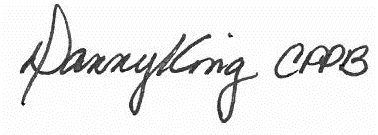 Danny King CAPB